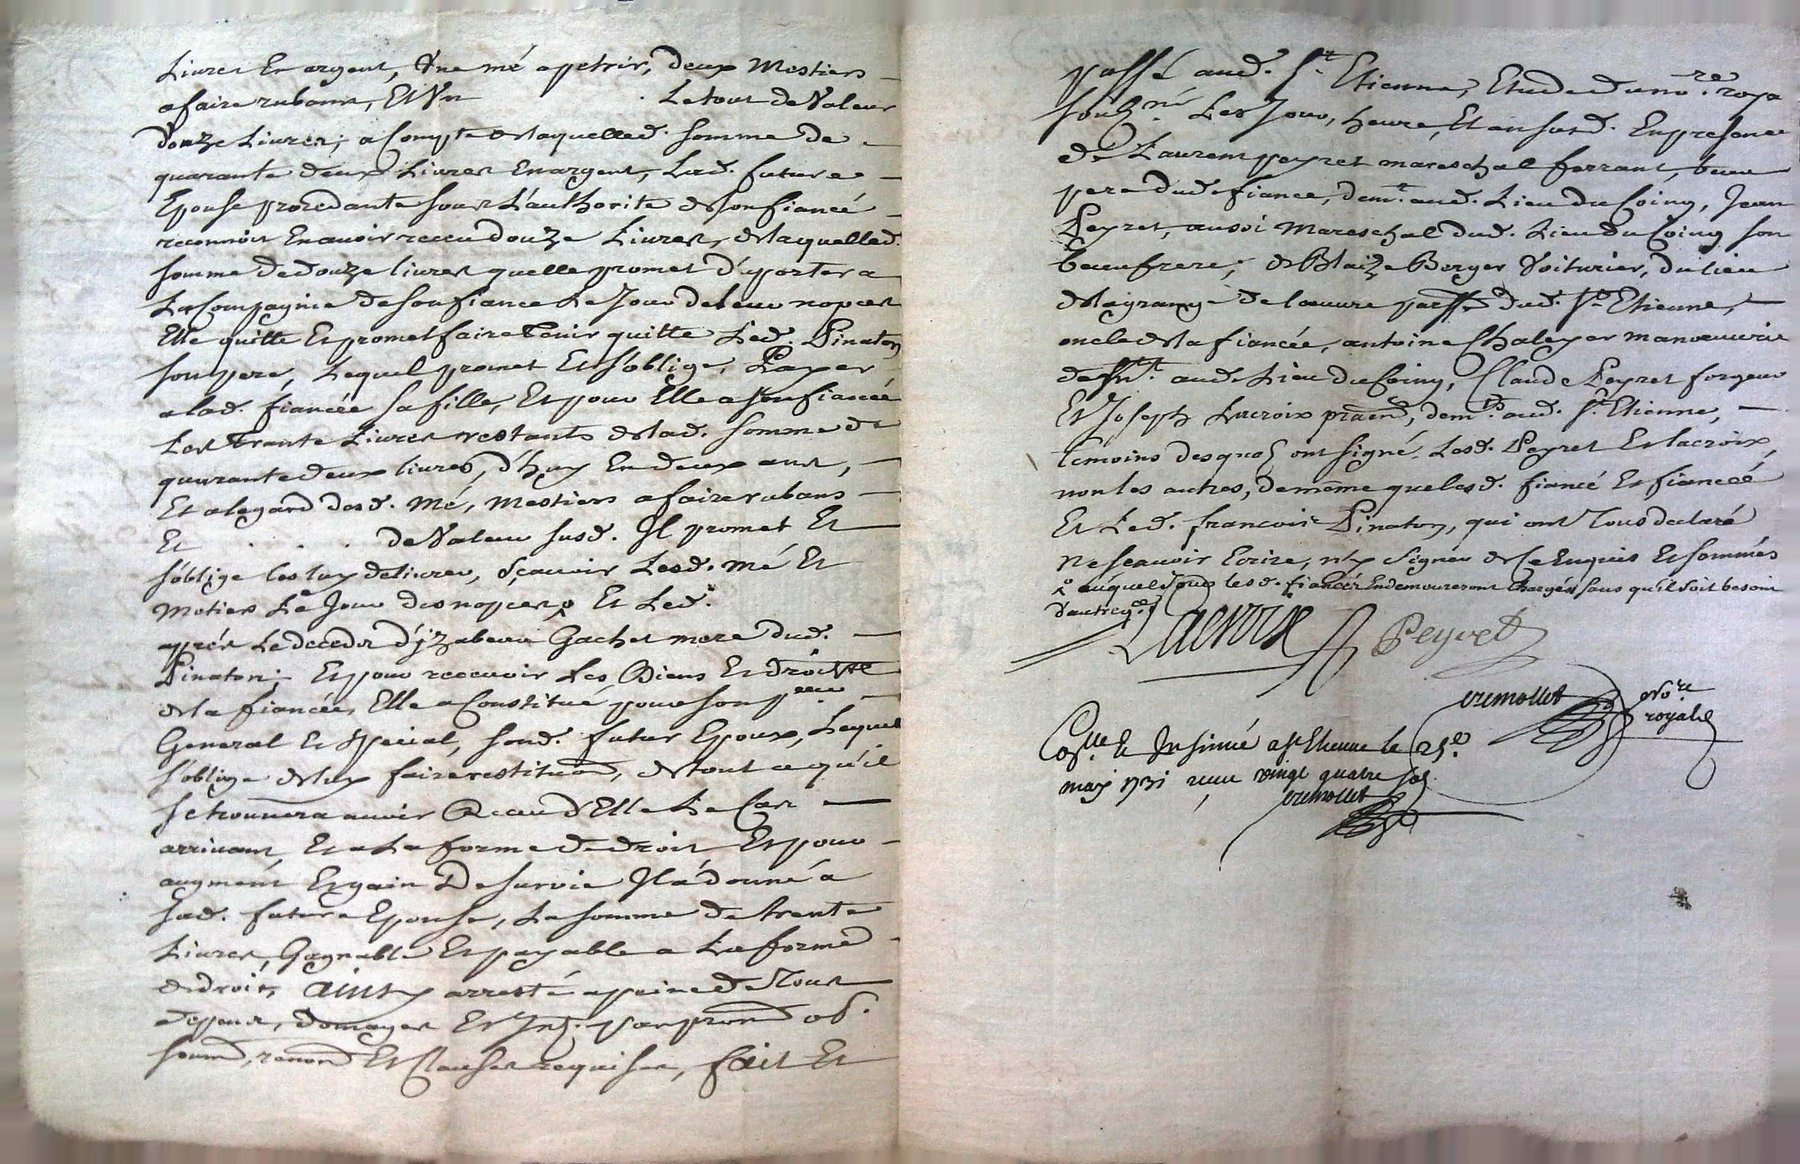 Livres En argent, Une mé apetrir, deux Mestiers
afaire rubans, Et Un . Le tout de Valeur
douze Livres; a Compte de laquelled. Somme de
quarante deux Livres En argent, Lad. future
Epouse procedante sous L'authorité de son fiancé
reconnoit En avoir receu douze Livres, de laquelled.
somme de douze livres quelle promet d'aporter a
La Compagnie de son fiance Le Jour de leur nopces
Elle quitte Et promet faire Tenir quitte Led. Pinaton
son pere, Lequel promet Et s'oblige, Payer
a lad. fiancée sa fille, Et pour Elle a son fiancé
Les Trante Livres restants de lad. somme de
quarante deux livres, d'huy En deux ans,
Et alegard desd. Mé, Mestiers afaire rubans
Et . . . . de Valeur susd. Il promet Et
s'oblige les luy delivrer, Sçavoir Lesd. mé Et
Metiers Le Jour des nopces Et Led.
après Le deceds d'yzabeau Gachet mere dud.
Pinaton; Et pour recevoir les Biens Et droits
de la fiancée, Elle a Constitué pour son preur
General Et special, sond. futur Epoux, Lequel
s'oblige de luy faire restitution, de tout ce qu'il
se trouvera avoir Receu d'Elle Le Cas
arrivant, Et a La forme de droit Et pour
augment Et gain De survie Il a donné a
sad. future Epouse, La somme de trente
Livres, Gagnable Et payable a La forme
de droit, ainsy arresté apeine de Tous
depens, domages Et Int. par prom ob.
soum, renon Et Clauses requises, fait Et
passé aud. St. Etienne, Etude du nore. roya
soubné. Les Jour, heure, Et an susd. En presence
de Laurent peyret mareschal ferrant, beau
pere dud. fiance, demt. aud. Lieu du Coing, Jean
Peyret, aussi Mareschal dud. Lieu du Coing son
beaufrere; de Blaize Berger Voiturier, du lieu
de la grange de l'oeuvre parsse dud. St. Etienne,
oncle de la fiancée, antoine Chaleyer manoeuvre
demt. aud. Lieu du Coing, Claude Peyret forgeur
Et Joseph Lacroix praend, demt. aud. St. Etienne,
temoins desquels ont signé Lesd. Peyret Et lacroix,
non les autres, de même que lesd. fiancé Et fiancée
Et Led. francois Pinaton, qui ont Tous declaré
ne scavoir Ecrire, ny Signer de ce Enquis Et sommés
auquel lesd. fiancés Endemoureront chargés sans qu'il soit besoin
d'autre
Lacroix Peyret
cremollet nore.
royal
Collé. & Insinué a St Etienne le 25e.
may 1731 receu vingt quatre sols
cremollet